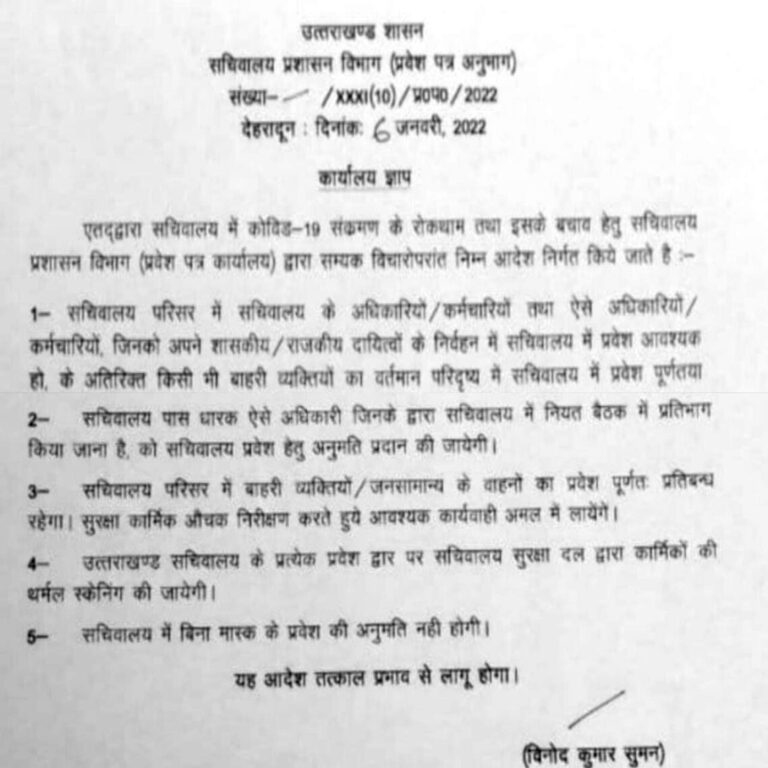 उत्तराखण्ड शासन
सचिवालय प्रशासन विभाग (प्रवेश पत्र अनुभाग)
संख्या– /XXXI(10)/प्र0प0/2022
देहरादून : दिनांक: 6 जनवरी, 2022
कार्यालय ज्ञाप
एतद्द्वारा सचिवालय में कोविड–19 संक्रमण के रोकथाम तथा इसके बचाव हेतु सचिवालय
प्रशासन विभाग (प्रवेश पत्र कार्यालय) द्वारा सम्यक विचारोपरांत निम्न आदेश निर्गत किये जाते है :–
1– सचिवालय परिसर में सचिवालय के अधिकारियों/कर्मचारियों तथा ऐसे अधिकारियों/
कर्मचारियों, जिनको अपने शासकीय/राजकीय दायित्वों के निर्वहन में सचिवालय में प्रवेश आवश्यक
हो, के अतिरिक्त किसी भी बाहरी व्यक्तियों का वर्तमान परिदृष्य में सचिवालय में प्रवेश पूर्णतया
2– सचिवालय पास धारक ऐसे अधिकारी जिनके द्वारा सचिवालय में नियत बैठक में प्रतिभाग
किया जाना है, को सचिवालय प्रवेश हेतु अनुमति प्रदान की जायेगी।
3– सचिवालय परिसर में बाहरी व्यक्तियों/जनसामान्य के वाहनों का प्रवेश पूर्णतः प्रतिबन्ध
रहेगा। सुरक्षा कार्मिक औचक निरीक्षण करते हुये आवश्यक कार्यवाही अमल में लायेंगें।
4– उत्तराखण्ड सचिवालय के प्रत्येक प्रवेश द्वार पर सचिवालय सुरक्षा दल द्वारा कार्मिकों की
थर्मल स्केनिंग की जायेगी।
5– सचिवालय में बिना मास्क के प्रवेश की अनुमति नही होगी।
यह आदेश तत्काल प्रभाव से लागू होगा।
(विनोद कुमार सुमन)